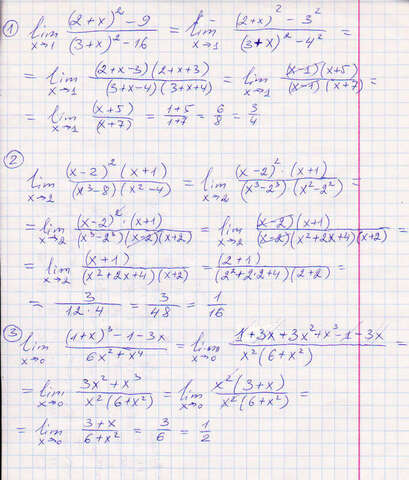 ① lim_{x→1} ((2+x)² - 9)/((3+x)² - 16) = lim_{x→1} ((2+x)² - 3²)/((3+x)² - 4²) =
= lim_{x→1} ((2+x-3)(2+x+3))/((3+x-4)(3+x+4)) = lim_{x→1} ((x-1)(x+5))/((x-1)(x+7)) =
= lim_{x→1} (x+5)/(x+7) = (1+5)/(1+7) = 6/8 = 3/4
② lim_{x→2} ((x-2)²(x+1))/((x³-8)(x²-4)) = lim_{x→2} ((x-2)²·(x+1))/((x³-2³)(x²-2²)) =
= lim_{x→2} ((x-2)²·(x+1))/((x³-2³)(x-2)(x+2)) = lim_{x→2} ((x-2)(x+1))/((x-2)(x²+2x+4)(x+2)) =
= lim_{x→2} (x+1)/((x²+2x+4)(x+2)) = (2+1)/((2²+2·2+4)(2+2)) =
= 3/(12·4) = 3/48 = 1/16
③ lim_{x→0} ((1+x)³-1-3x)/(6x²+x⁴) = lim_{x→0} (1+3x+3x²+x³-1-3x)/(x²(6+x²)) =
= lim_{x→0} (3x²+x³)/(x²(6+x²)) = lim_{x→0} (x²(3+x))/(x²(6+x²)) =
= lim_{x→0} (3+x)/(6+x²) = 3/6 = 1/2